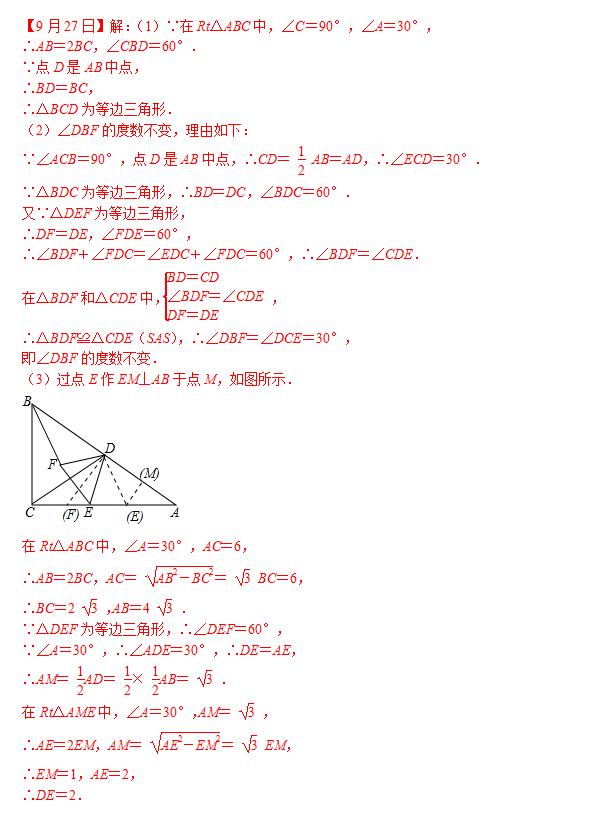 【9月27日】解:（1）∵在Rt△ABC中，∠C＝90°，∠A＝30°，
∴AB＝2BC，∠CBD＝60°．
∵点D是AB中点，
∴BD＝BC，
∴△BCD为等边三角形．
（2）∠DBF的度数不变，理由如下：
∵∠ACB＝90°，点D是AB中点，∴CD＝ 1/2 AB＝AD，∴∠ECD＝30°．
∵△BDC为等边三角形，∴BD＝DC，∠BDC＝60°．
又∵△DEF为等边三角形，
∴DF＝DE，∠FDE＝60°，
∴∠BDF＋∠FDC＝∠EDC＋∠FDC＝60°，∴∠BDF＝∠CDE．
在△BDF和△CDE中，{BD＝CD
∠BDF＝∠CDE ，
DF＝DE
∴△BDF≌△CDE（SAS），∴∠DBF＝∠DCE＝30°，
即∠DBF的度数不变．
（3）过点E作EM⊥AB于点M，如图所示．
B
D
F
(M)
C (F) E (E) A
在Rt△ABC中，∠A＝30°，AC＝6，
∴AB＝2BC，AC＝ √(AB²－BC²)＝ √3 BC＝6，
∴BC＝2 √3 ,AB＝4 √3 ．
∵△DEF为等边三角形，∴∠DEF＝60°，
∵∠A＝30°，∴∠ADE＝30°，∴DE＝AE，
∴AM＝ 1/2AD＝ 1/2× 1/2AB＝ √3 ．
在Rt△AME中，∠A＝30°,AM＝ √3 ，
∴AE＝2EM，AM＝ √(AE²－EM²)＝ √3 EM，
∴EM＝1，AE＝2，
∴DE＝2．